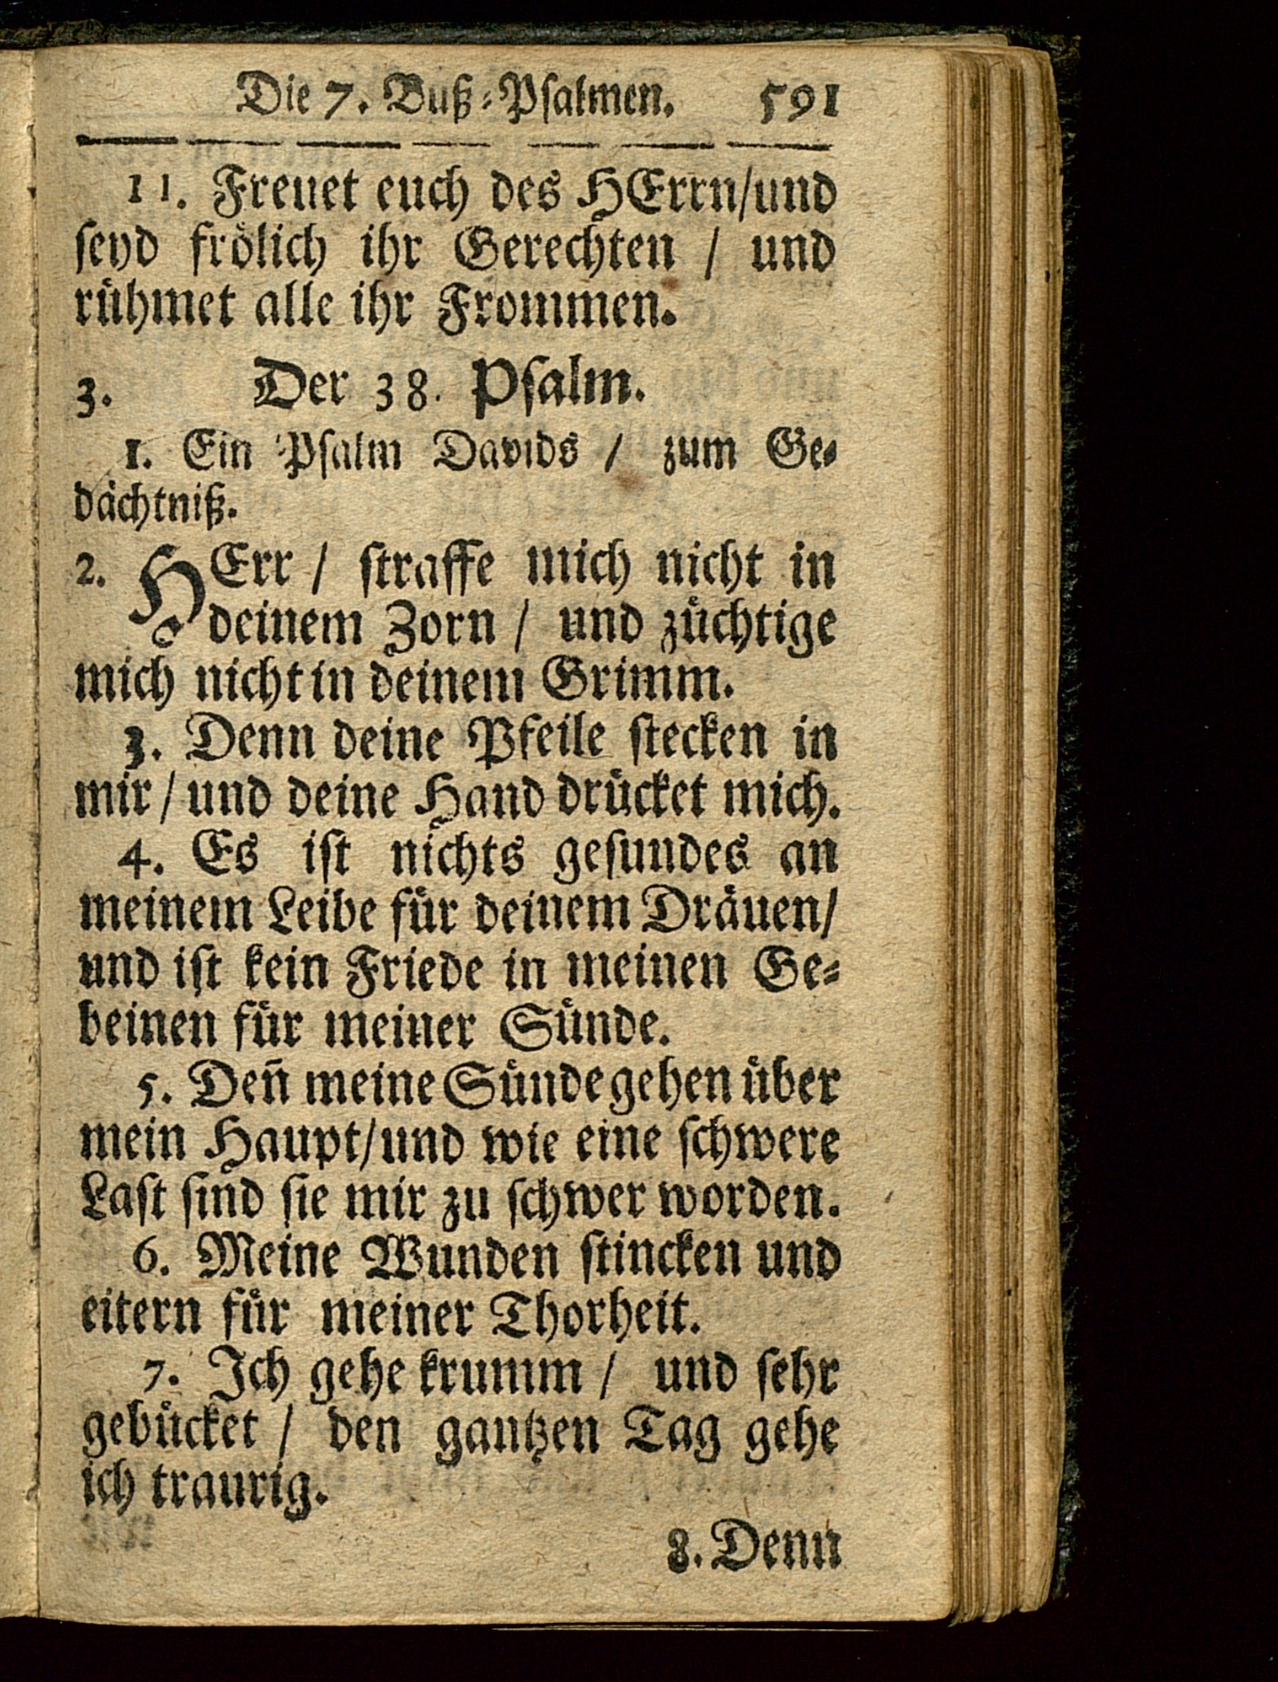 Die 7. Buß-Psalmen. 591
11. Freuet euch des HErrn/und
seyd frölich ihr Gerechten / und
rühmet alle ihr Frommen.
3. Der 38. Psalm.
1. Ein Psalm Davids / zum Ge-
dächtniß.
2. HErr / straffe mich nicht in
deinem Zorn / und züchtige
mich nicht in deinem Grimm.
3. Denn deine Pfeile stecken in
mir / und deine Hand drücket mich.
4. Es ist nichts gesundes an
meinem Leibe für deinem Dräuen/
und ist kein Friede in meinen Ge-
beinen für meiner Sünde.
5. Den̄ meine Sünde gehen über
mein Haupt/und wie eine schwere
Last sind sie mir zu schwer worden.
6. Meine Wunden stincken und
eitern für meiner Thorheit.
7. Ich gehe krumm / und sehr
gebücket / den gantzen Tag gehe
ich traurig.
8. Denn